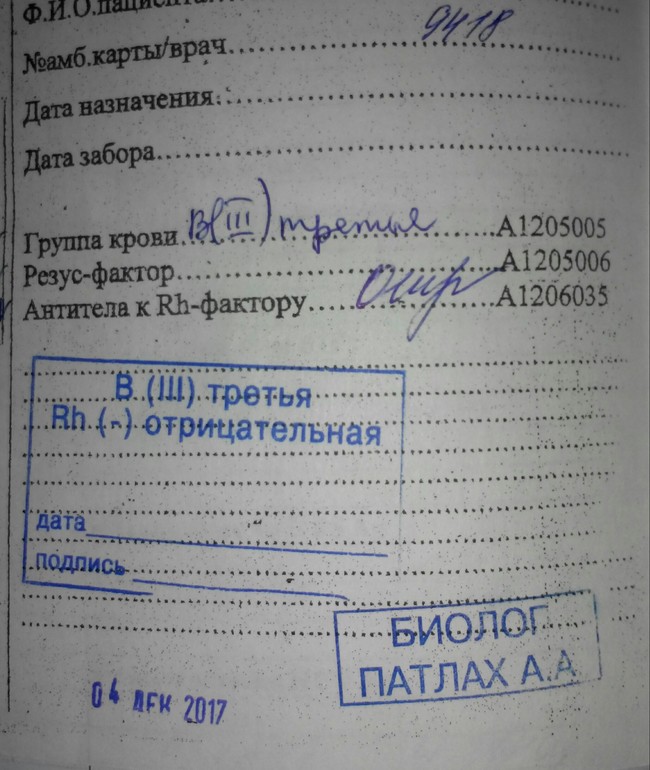 Ф.И.О.пациента
9418
№амб.карты/врач
Дата назначения
Дата забора
Группа крови B(III) третья A1205005
Резус-фактор A1205006
Антитела к Rh-фактору A1206035
B (III) третья
Rh (-) отрицательная
дата
подпись
БИОЛОГ
ПАТЛАХ А.А
04 ДЕК 2017